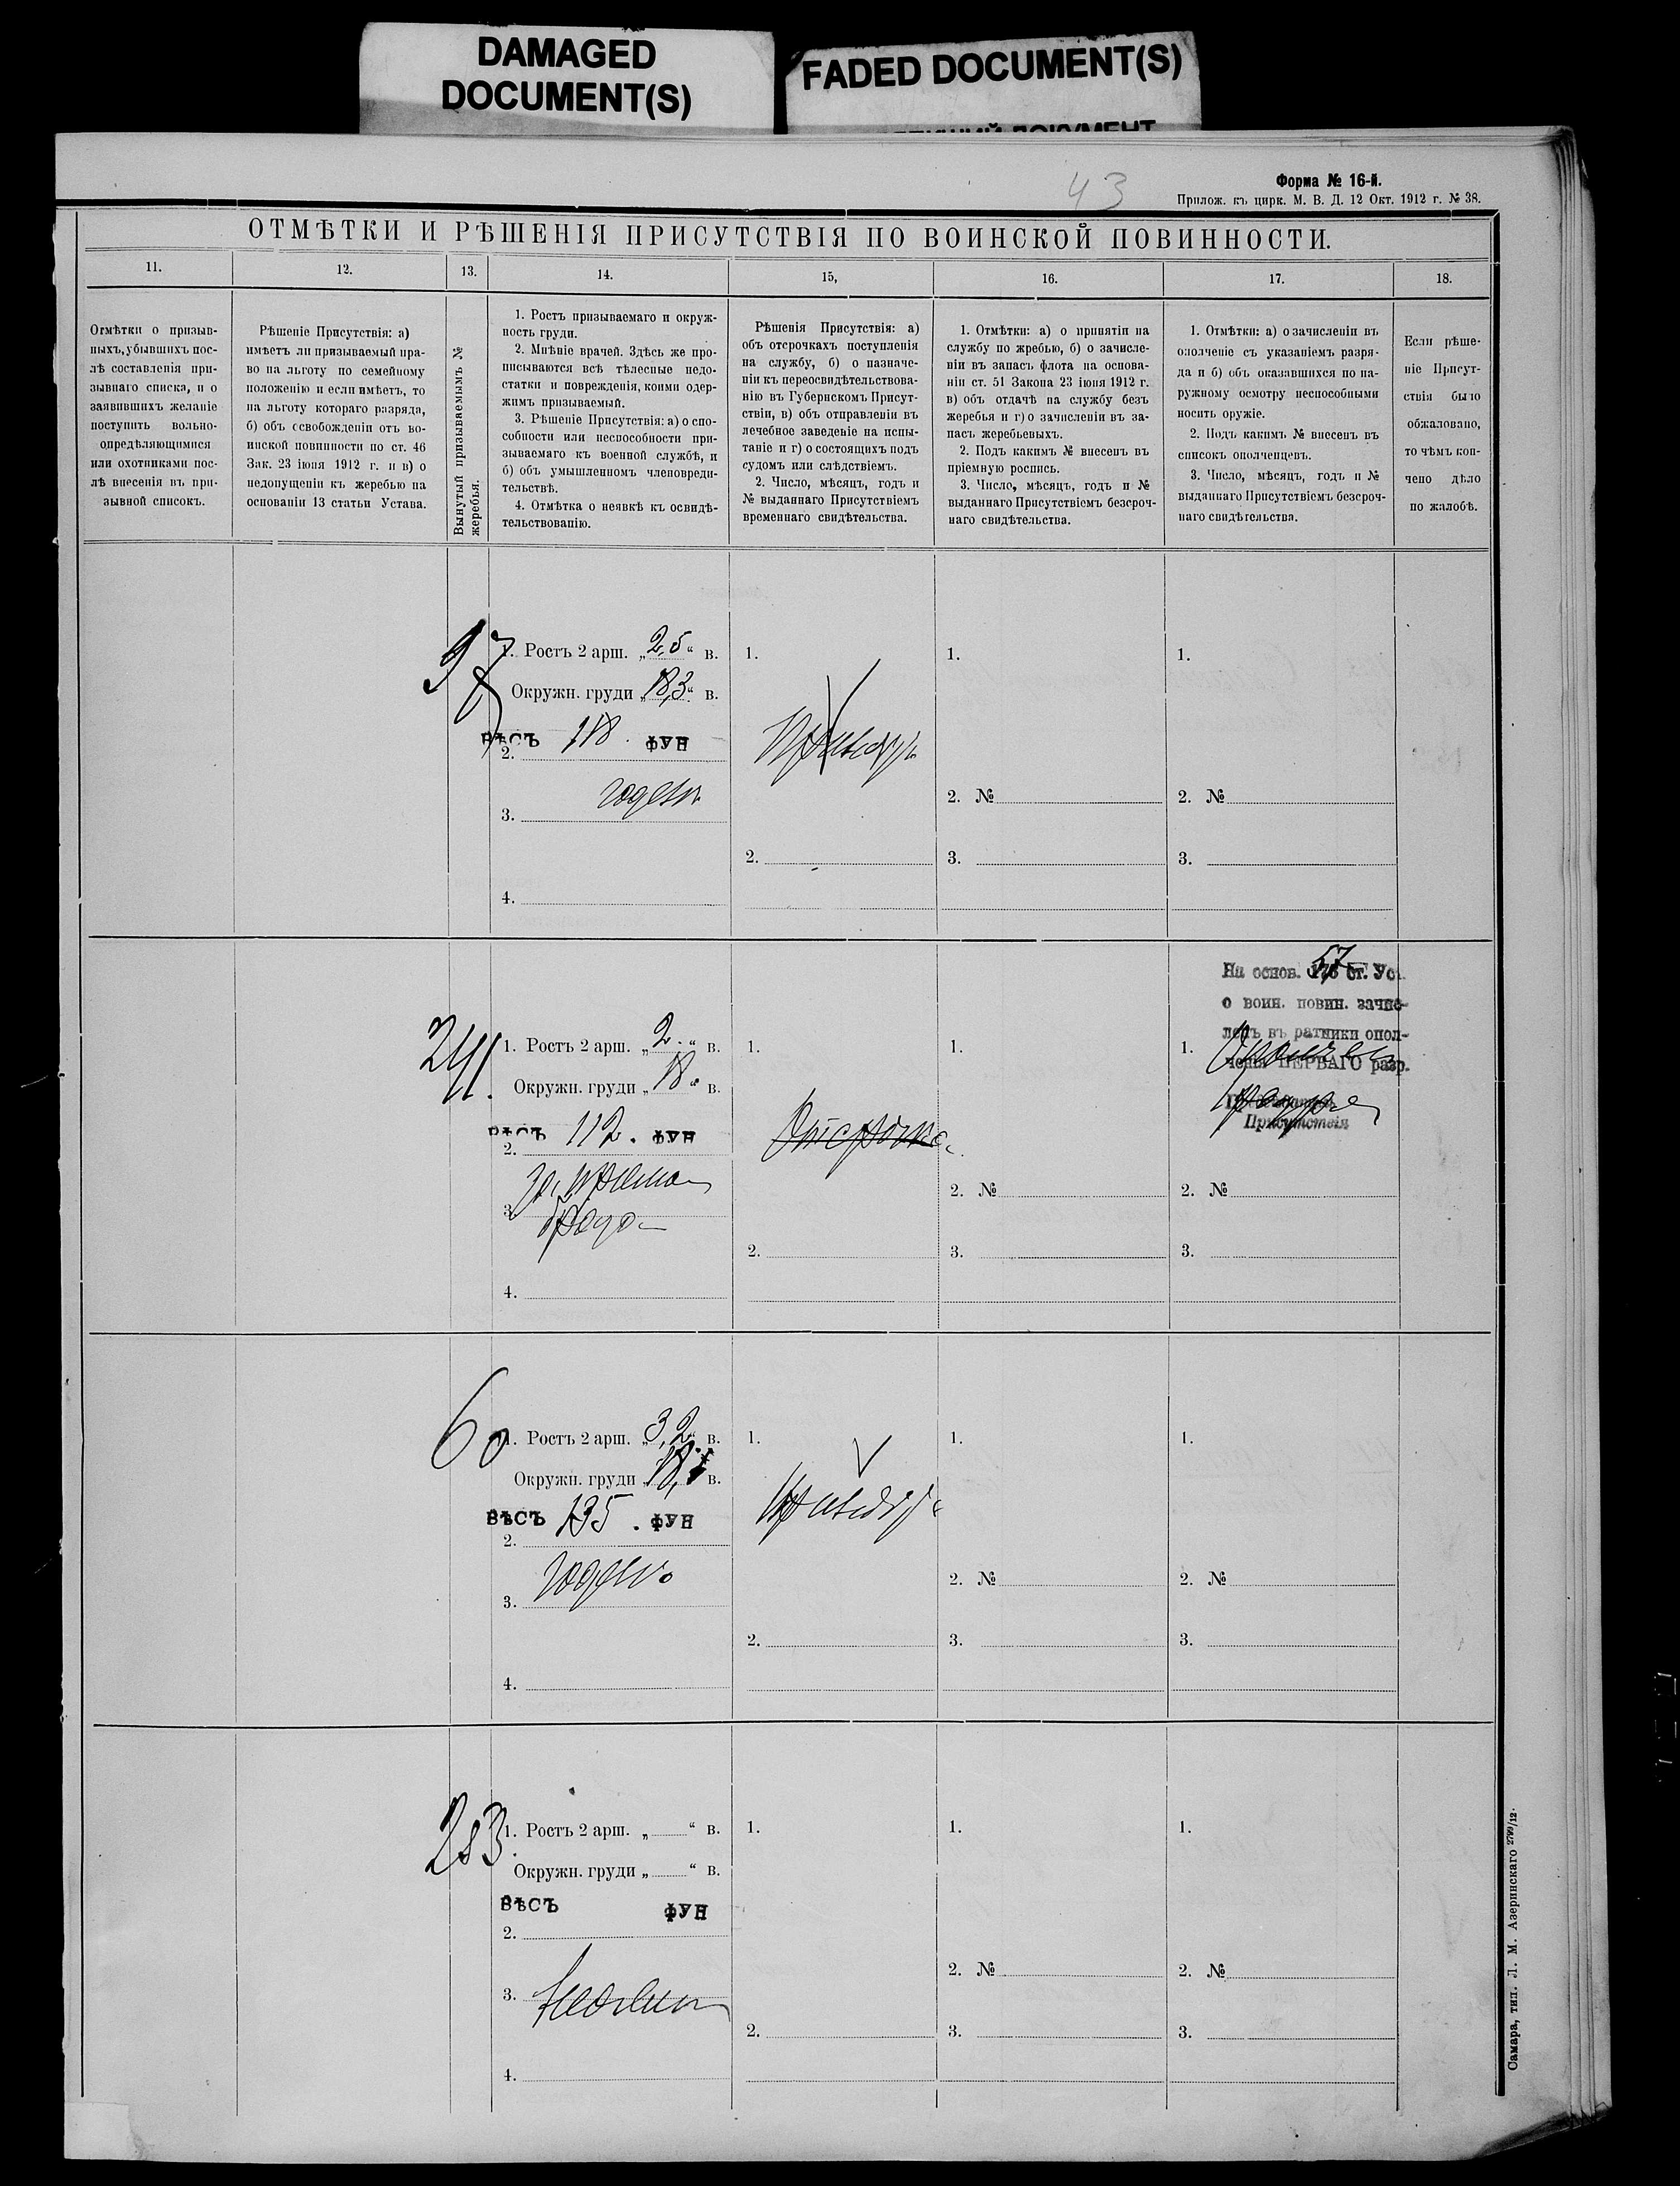 DAMAGED
DOCUMENT(S)
FADED DOCUMENT(S)
43
Форма № 16-й.
Прилож. къ цирк. М. В. Д. 12 Окт. 1912 г. № 38.
ОТМѢТКИ И РѢШЕНІЯ ПРИСУТСТВІЯ ПО ВОИНСКОЙ ПОВИННОСТИ.
11.
12.
13.
14.
15,
16.
17.
18.
Отмѣтки о призыв-
ныхъ, убывшихъ пос-
лѣ составленія при-
зывнаго списка, и о
заявившихъ желаніе
поступить вольно-
опредѣляющимися
или охотниками пос-
лѣ внесенія въ при-
зывной списокъ.
Рѣшеніе Присутствія: а)
имѣетъ ли призываемый пра-
во на льготу по семейному
положенію и если имѣетъ, то
на льготу котораго разряда,
б) объ освобожденіи отъ во-
инской повинности по ст. 46
Зак. 23 іюня 1912 г. и в) о
недопущеніи къ жеребью на
основаніи 13 статьи Устава.
Вынутый призываемымъ №
жеребья.
1. Ростъ призываемаго и окруж-
ность груди.
2. Мнѣніе врачей. Здѣсь же про-
писываются всѣ тѣлесные недо-
статки и поврежденія, коими одер-
жимъ призываемый.
3. Рѣшеніе Присутствія: а) о спо-
собности или неспособности при-
зываемаго къ военной службѣ, и
б) объ умышленномъ членовреди-
тельствѣ.
4. Отмѣтка о неявкѣ къ освидѣ-
тельствованію.
Рѣшенія Присутствія: а)
объ отсрочкахъ поступленія
на службу, б) о назначе-
ніи къ переосвидѣтельствова-
нію въ Губернскомъ Присут-
ствіи, в) объ отправленіи въ
лечебное заведеніе на испы-
таніе и г) о состоящихъ подъ
судомъ или слѣдствіемъ.
2. Число, мѣсяцъ, годъ и
№ выданнаго Присутствіемъ
временнаго свидѣтельства.
1. Отмѣтки: а) о принятіи на
службу по жребью, б) о зачисле-
ніи въ запасъ флота на основа-
ніи ст. 51 Закона 23 іюня 1912 г.
в) объ отдачѣ на службу безъ
жеребья и г) о зачисленіи въ за-
пасъ жеребьевыхъ.
2. Подъ какимъ № внесенъ въ
пріемную роспись.
3. Число, мѣсяцъ, годъ и №
выданнаго Присутствіемъ безсроч-
наго свидѣтельства.
1. Отмѣтки: а) о зачисленіи въ
ополченіе съ указаніемъ разря-
да и б) объ оказавшихся по на-
ружному осмотру неспособными
носить оружіе.
2. Подъ какимъ № внесенъ въ
списокъ ополченцевъ.
3. Число, мѣсяцъ, годъ и №
выданнаго Присутствіемъ безсроч-
наго свидѣтельства.
Если рѣше-
ніе Присут-
ствія было
обжаловано,
то чѣмъ кон-
чено дѣло
по жалобѣ.
1. Ростъ 2 арш. „2,5“ в.
Окружн. груди „18,3“ в.
ВѢСЪ 118 ФУН
2.
годенъ
3.
4.
1.
2.
1.
2. №
3.
1.
2. №
3.
241.
1. Ростъ 2 арш. „2.“ в.
Окружн. груди „18“ в.
ВѢСЪ 112. ФУН
2.
3.
4.
1.
Отсрочка
2.
1.
2. №
3.
На основ. 57 ст. Уст.
о воин. повин. зачис-
ленъ въ ратники опол-
ченія ПЕРВАГО разр.
Присутствія
1.
2. №
3.
60
1. Ростъ 2 арш. „3,2“ в.
Окружн. груди „18, в.
ВѢСЪ 135. ФУН
2.
годенъ
3.
4.
1.
2.
1.
2. №
3.
1.
2. №
3.
283.
1. Ростъ 2 арш. „ “ в.
Окружн. груди „ “ в.
ВѢСЪ ФУН
2.
3.
4.
1.
2.
1.
2. №
3.
1.
2. №
3.
Самара, тип. Л. М. Азеринскаго 2799/12.